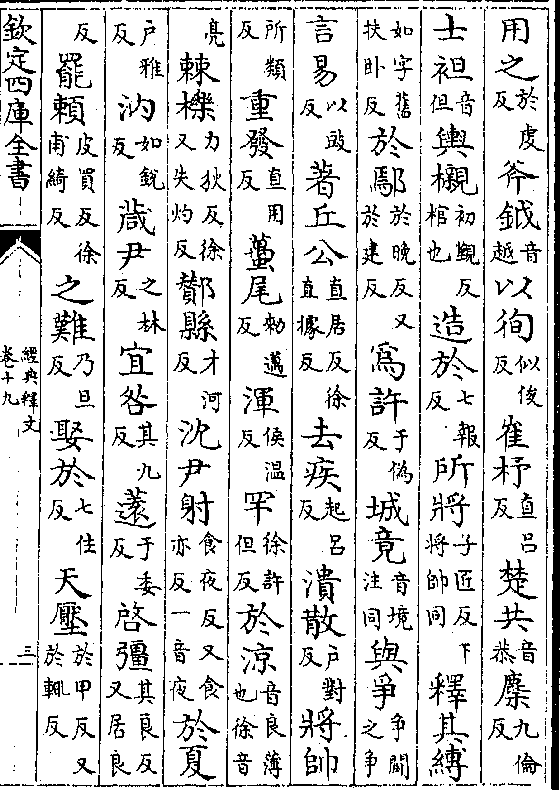 用之於虔反斧鉞音越以徇似俊反崔杼直呂反楚共音恭麇九倫反
士袒音但輿櫬初覲反棺也造於七報反所將子匠反下將帥同釋其縛
如字舊扶卧反於鄢於晚反又於建反為許于偽反城竟音境注同與爭爭鬭之爭
言易以豉反著丘公直居反徐直據反去疾起呂反潰散戶對反將帥
所類反重發直用反蠆尾勑邁反渾侯温反罕徐許但反於涼音良薄也徐音
亮棘櫟力狄反徐又失灼反酇縣才河反沈尹射食夜反又食亦反一音夜於夏
戶雅反汭如銳反葴尹之林反宜咎其九反薳于委反啓彊其良反又居良
反罷賴皮買反徐甫綺反之難乃旦反娶於七住反天壓於甲反又於輒反
欽定四庫全書
經典釋文
卷十九
三